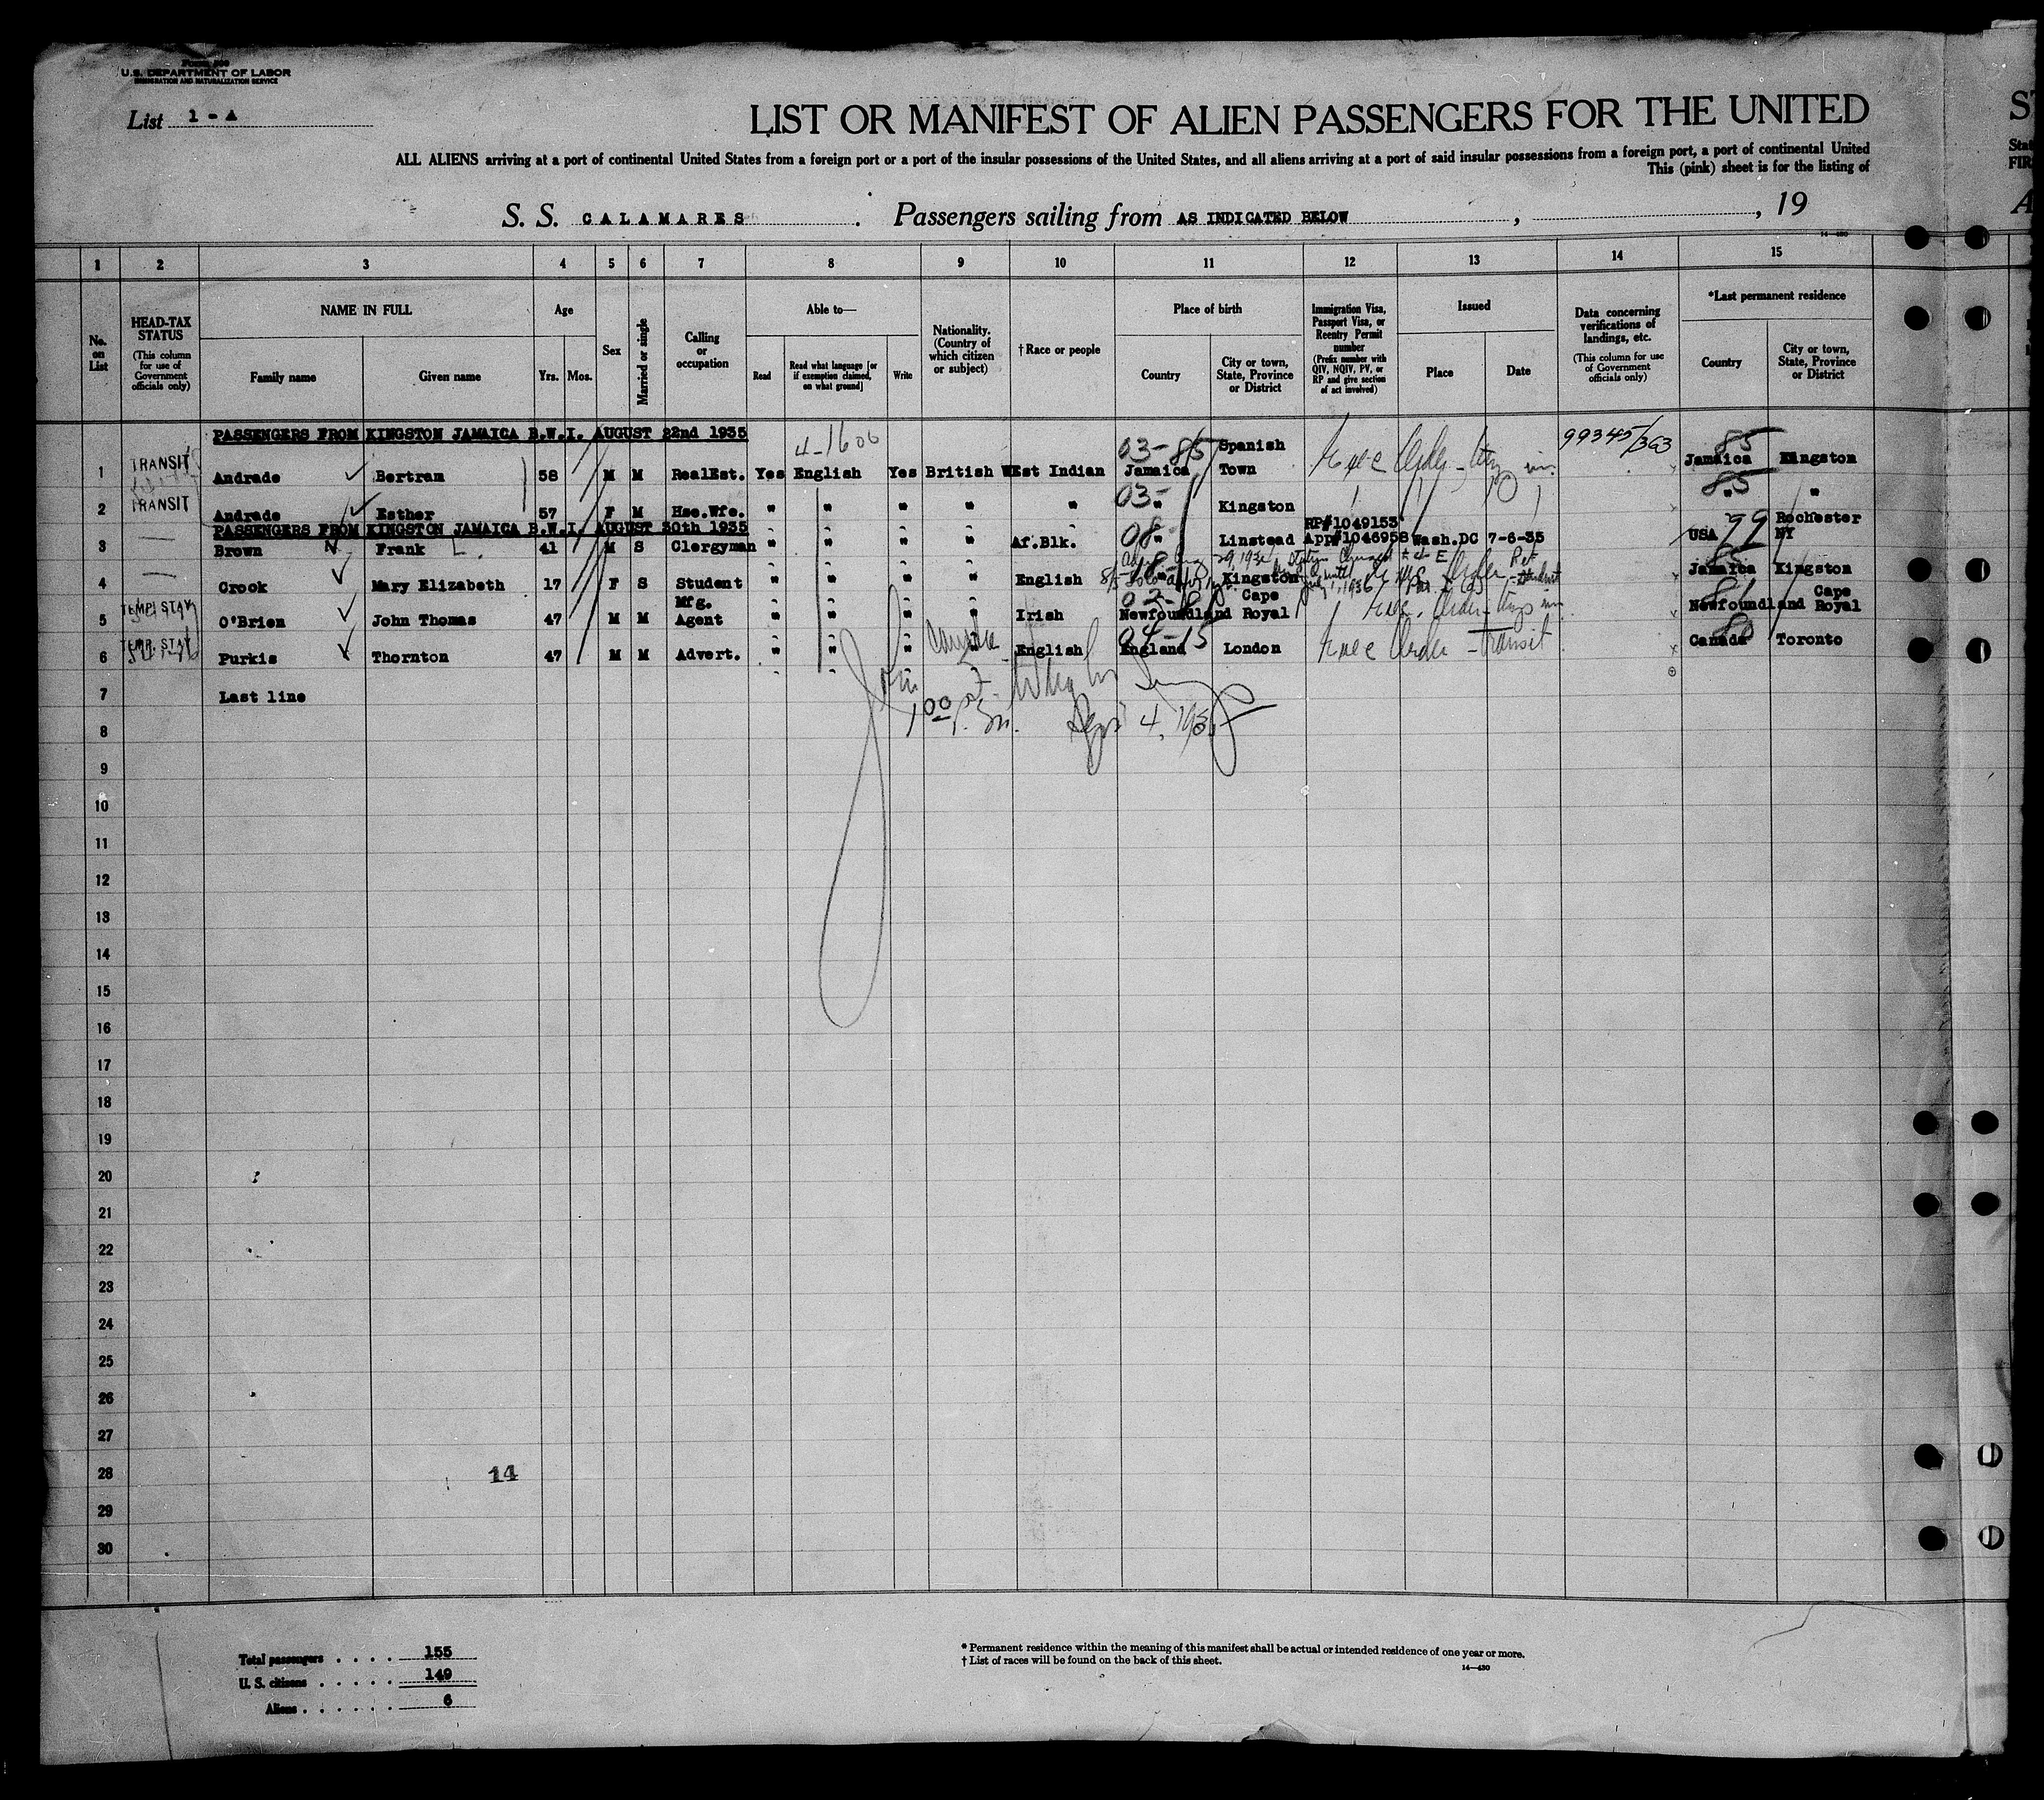 Form 500
U.S. DEPARTMENT OF LABOR
IMMIGRATION AND NATURALIZATION SERVICE
List 1 - A
LIST OR MANIFEST OF ALIEN PASSENGERS FOR THE UNITED
ALL ALIENS arriving at a port of continental United States from a foreign port or a port of the insular possessions of the United States, and all aliens arriving at a port of said insular possessions from a foreign port, a port of continental United
This (pink) sheet is for the listing of
S. S. CALAMARES. Passengers sailing from AS INDICATED BELOW, , 19
14—430
1 2 3 4 5 6 7 8 9 10 11 12 13 14 15
No. on List
HEAD-TAX STATUS
(This column for use of Government officials only)
NAME IN FULL
Family name
Given name
Age
Yrs. Mos.
Sex
Married or single
Calling or occupation
Able to—
Read
Read what language [or if exemption claimed, on what ground]
Write
Nationality. (Country of which citizen or subject)
†Race or people
Place of birth
Country
City or town, State, Province or District
Immigration Visa, Passport Visa, or Reentry Permit number
(Prefix number with QIV, NQIV, PV, or RP and give section of act involved)
Issued
Place
Date
Data concerning verifications of landings, etc.
(This column for use of Government officials only)
*Last permanent residence
Country
City or town, State, Province or District
PASSENGERS FROM KINGSTON JAMAICA B.W.I. AUGUST 22nd 1935
4-1600
99345/363
1 TRANSIT Andrade Bertram 58 M M RealEst. Yes English Yes British West Indian 03-85 Jamaica Spanish Town 85 Jamaica Kingston
2 TRANSIT Andrade Esther 57 F M Hse.Wfe. " " " " " 03- " Kingston 85 " "
PASSENGERS FROM KINGSTON JAMAICA B.W.I. AUGUST 30th 1935
3 Brown Frank L. 41 M S Clergyman " " " " Af.Blk. 08- " Linstead RP#1049153 App#1046958 Wash.DC 7-6-35 USA 99 Rochester NY
4 Crook Mary Elizabeth 17 F S Student " " " " English " Kingston 85 Jamaica Kingston
5 TEMP. STAY O'Brien John Thomas 47 M M Mfg. Agent " " " " Irish Newfoundland Cape Royal 81 Newfoundland Cape Royal
6 TEMP. STAY Purkis Thornton 47 M M Advert. " " " Canada English 04-15 England London Exec Order - Transit 80 Canada Toronto
7 Last line
1 00 P.M. Sept 4, 1935
8
9
10
11
12
13
14
15
16
17
18
19
20
21
22
23
24
25
26
27
28 14
29
30
Total passengers . . . . 155
U. S. citizens . . . . . 149
Aliens . . . . . . 6
* Permanent residence within the meaning of this manifest shall be actual or intended residence of one year or more.
† List of races will be found on the back of this sheet.
14—430